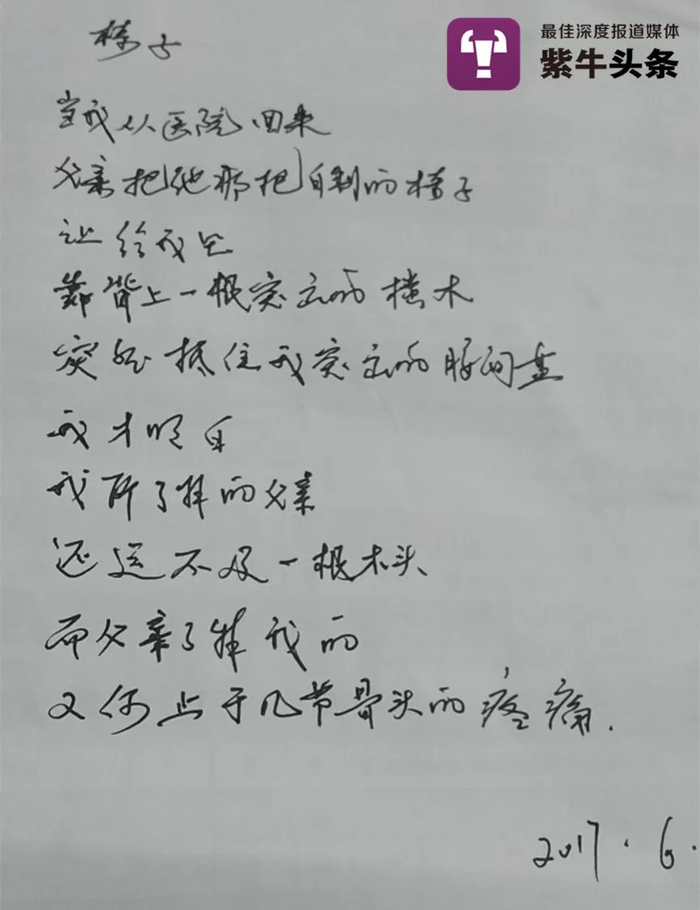 最佳深度报道媒体
紫牛头条
椅子
当我从医院回来
父亲把他那把自制的椅子
让给我坐
靠背上一根突出的横木
突然抵住我突出的腰间盘
我才明白
我所了解的父亲
还远不及一根木头
而父亲了解我的
又何止于几节骨头的疼痛.
2017.6.